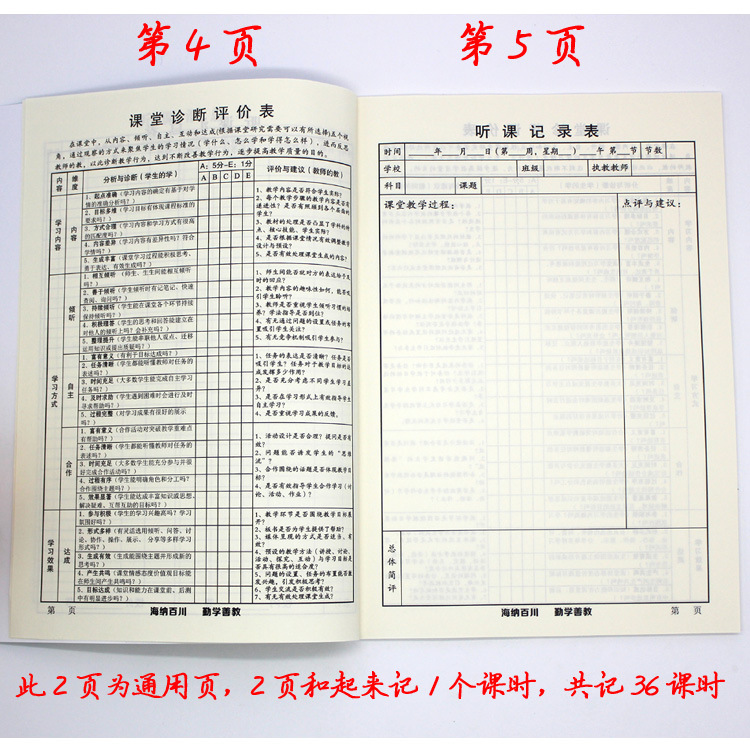 第4页
第5页
课堂诊断评价表
在课堂中，从内容、倾听、自主、互动和达成(根据课堂研究需要可以有所选择)五个视
角，通过观察的方式来聚焦学生的学习情况（学什么、怎么学和学得怎么样），进而反思
教师的教，以此诊断教学行为，达到不断改善教学行为，逐步提高教学质量的目的。
内容
维度
分析与诊断（学生的学）
A：5分—E：1分
A B C D E
评价与建议（教师的教）
学习内容
内容
1．起点准确（学习内容的确定有基于对学
情的准确分析吗？）
2．目标多维（学习目标有体现课程标准的
要求吗？）
3．方式合理（学习内容和学习方式有很高
的匹配度吗？）
4．内容差异（学习内容有差异性吗？符合
学情吗？）
5．生成丰富（课堂学习过程能积极思考，
勇于表达、有效生成吗？）
1、教学内容是否符合学生实际？
2、每个教学步骤的教学内容是否有
递进性？是否有照顾到各个层面的
学生？
3、教材的处理是否凸显了学科的特
点、核心技能、学生实际？
4、是否根据课堂情况有效调整教学
设计与预设？
5、是否有效处理课堂生成的内容？
学习方式
倾听
1．相互倾听（师生、生生间能相互倾听
吗？）
2．善于倾听（学生倾听时有记笔记、快速
查阅、询问吗？）
3．持续倾听（学生能在课堂各个环节持续
保持倾听吗？）
4．积极理答（学生的思考和回答能建立在
对他人的倾听上吗？会补充吗？）
5．整理提升（学生能串联他人观点、迁移
运用知识或提出质疑吗？）
1、师生间能否就对方的表达给予及
时的回应？
2、教学内容的趣味性如何，能否吸
引学生聆听？
3、教师是否重视学生倾听习惯的培
养？学法指导是否到位？
4、有无通过问题的设置或任务的布
置吸引学生关注？
5、有无竞争机制吸引学生参与？
自主
1．富有意义（有利于目标达成吗？）
2．任务清晰（学生都能听懂教师对任务的
表述吗？）
3．时间充足（大多数学生能完成自主学习
任务吗？）
4．及时求助（学生遇到困难时会进行及时
寻求帮助吗？）
5．过程完整（对学习成果有很好的展示
吗？）
1、任务的表达是否清晰？任务是否
吸引学生？任务对于教学目标的达
成发挥多少作用？
2、是否充分考虑不同学生学习差
异？
3、是否在学习形式上有效指导学生
自主学习？
4、是否重视学习成果的反馈。
合作
1．富有意义（合作活动对突破教学重难点
有帮助吗？）
2．任务清晰（学生都能听懂教师对任务的
表述吗？）
3．时间充足（大多数学生能充分参与并很
好完成合作活动吗？）
4．过程有序（学生能明确角色和分工吗？
合作围绕主题吗？）
5．效果显著（学生能达成丰富知识或思想、
解决疑难、互帮互助的目标吗？）
1、活动设计是否合理？提问是否有
效？
2、问题能否诱发学生的“思维
流”？
3、合作围绕的话题是否体现教学目
标？
4、是否有效指导学生合作学习（讨
论、活动、作业）？
学习效果
达成
1．参与积极（学生的学习兴趣高吗？学习
氛围好吗？）
2．形式多样（有灵活选用倾听、问答、讨
论、协作、操作、展示、分享等多样学习
形式吗？）
3．生成有效（生成能围绕主题并形成新的
思考吗？）
4．产生共鸣（课堂情感态度价值观目标能
在师生间产生共鸣吗？）
5．目标达成（知识和能力在课堂前、后测
中有明显进步吗？）
1、教学环节是否围绕教学目标展
开？
2、板书是否为学生提供了帮助？
3、媒体呈现的方式是否适当、有
效？
4、预设的教学方法（讲授、讨论、
活动、探究、互动）与学习目标是
否具有很高的适合度？
5、问题的设置、任务的布置能否激
发兴趣，引发积极思考？
6、学生交流是否积极有效？
7、有无有效处理课堂生成？
第 页
海纳百川 勤学善教
听课记录表
时间 ____年____月____日（第__周，星期__）__午 第__节 节数
学校 班级 执教教师
科目 课题
课堂教学过程： 点评与建议：
总体简评
海纳百川 勤学善教
第 页
此2页为通用页，2页和起来记1个课时，共记36课时